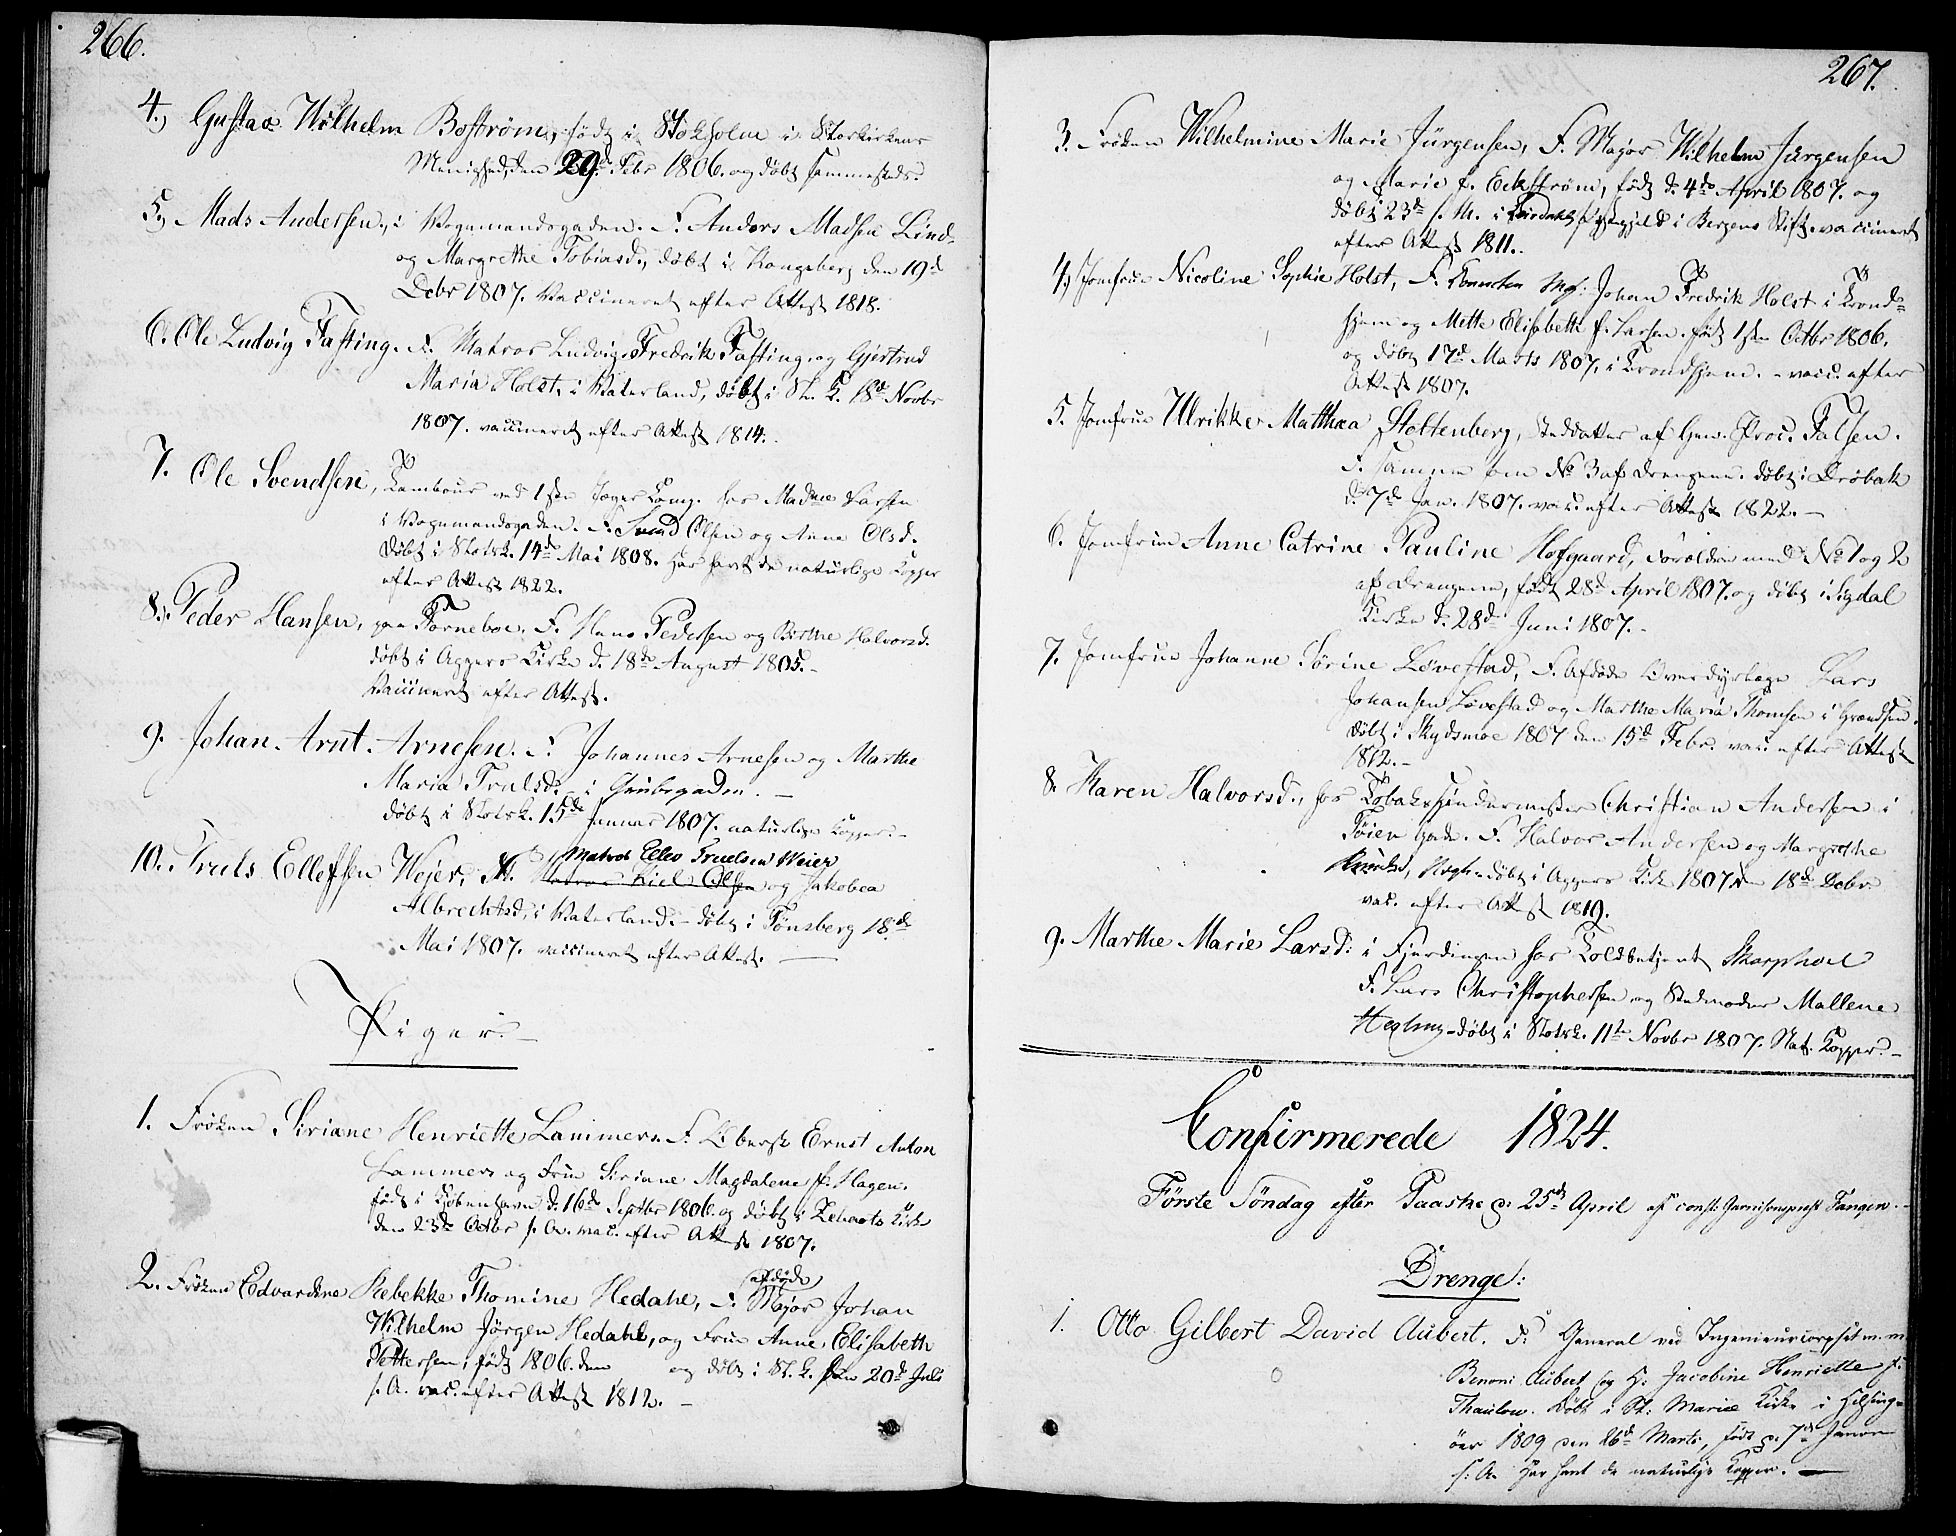 266.
4.) Gustav Wilhelm Boström, født i Stokholm i Storkirkens
Menighed, den 29de Febr 1806. og døbt sammesteds.
5.) Mads Andersen, i Vognmandsgaden. F. Anders Madsen Lind
og Margrethe Tobiasd., døbt i Kongsberg den 19d
Debr 1807. Vaccineret efter Attest 1818.
6. Ole Ludvig Fasting. F. Matros Ludvig Fredrik Fasting og Gjertrud
Maria Holst, i Vaterland, døbt i St. K. 18d Novbr
1807. vaccineret efter Attest 1814.
7. Ole Svendsen, Tambour ved 1ste Jæger Comp. hos Madme Larsen
i Vognmandsgaden. F. Svend Olsen og Anne Olsd.
døbt i Slotsk. 14de Mai 1808. Har havt de naturlige Kopper
efter Attest 1822.
8. Peder Hansen, paa Torneboe. F. Hans Pedersen og Birthe Halvorsd.
døbt i Aggers Kirke d. 18de August 1805.-
Vaccineret efter Attest.
9. Johan Arnt Arnesen. F. Johannes Arnesen og Marthe
Maria Trulsd. - i Grubegaden. -
døbt i Slotsk. 15de Januar 1807. naturlige Kopper.-
Matros Ellev Truelsen Weier
10. Truls Ellefsen Wejer, F. Matros Kiel Olsen og Jakobea
Albrechtsd, i Vaterland. - døbt i Tønsberg 18.d
Mai 1807. vaccineret efter Attest. -
Piger. -
1. Frøken Siriane Henriette Lammers F. Oberst Ernst Anton
Lammers og Frue Siriane Magdalene f. Hagen.
født i Kjøbenhavn d. 16de Septbr 1806. og døbt i Kirke
den 23de Octbr s. A. vac. efter Attest 1807.
2. Frøken Edvardine Rebekke Thomine Hedahl, F. (afdøde) Major Johan
Wilhelm Jørgen Hedahl, og Frue Anne Elisabeth
Pettersen, født 1806. den og døbt i St. K. den 20de Juli
s. A. vac. efter Attest 1812. -
267.
3. Frøken Wilhelmine Marie Jürgensen, F. Major Wilhelm Jürgensen
og Marie f. Eckstrøm, født d. 4de April 1807. og
døbt 23de s. M. i Præstegjeld i Bergens Stift. vaccineret
efter Attest 1811.
4.) Jomfrue Nicoline Sophie Holst, F. Johan Fredrik Holst i Trond-
hjem og Mette Elisabeth f. Larsen. født 1ste Octbr 1806.
og døbt 17d Marts 1807. i Trondhjem. - vacc. efter
Attest 1807.
5. Jomfrue Ulrikke Matthea Stoltenberg, Steddatter af Gen. Proc. Falsen.
F. samme som No 3 af Drengene. døbt i Drøbak
d. 7de Jan. 1807. vac. efter Attest 1822. -
6. Jomfrue Anne Catrine Pauline Hofgaard, Forældre med No 1 og 2
af Drengene, født 28d April 1807. og døbt i Sigdal
Kirke d. 28de Juni 1807. -
7. Jomfrue Johanne Sørine Løvestad, F. Afdøde Overdyrlæge Lars
Johansen Løvestad og Marthe Maria Thomsen i Grændsen.
døbt i Skydsmoe 1807 den 15d Febr. vac. efter Attest
1812. -
8. Karen Halvorsd., hos Tobakspindermester Christian Andersen i
Tøien Gade. F. Halvor Andersen og Margrethe
døbt i Aggers Kirke 1807. den 18de Debr.
vac. efter Attest 1819.
9. Marthe Marie Larsd: i Fjerdingen hos Toldbetjent Skarphoel
F. Lars Christophersen og Stedmoder Mallene
døbt i Slotsk. 11te Novbr 1807. Nat. Kopper. -
Confirmerede 1824.
Förste Söndag efter Paaske d. 25de April af const. Garnisonspræst Fangen.
Drenge:
1. Otto Gilbert David Aubert. F: General ved Ingenieurcorpset m. m.
Benoni Aubert og H: Jacobine Henriette f.
Thaulow. Döbt i St: Mariæ Kirke i Helsing-
öer 1809 den 26de Marts, födt d. 7de Januar
s: A. Har havt de naturlige Kopper. -